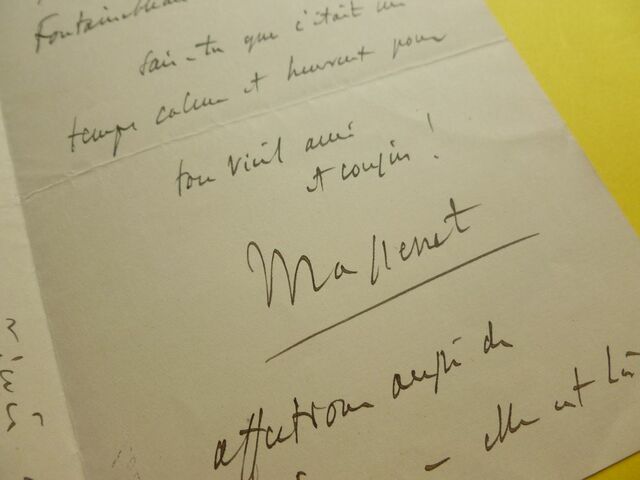 Fontainebleau
Sais-tu que c'était un
temps calme et heureux pour
ton vieil ami
et cousin !
Massenet
affection aussi de
– elle est là